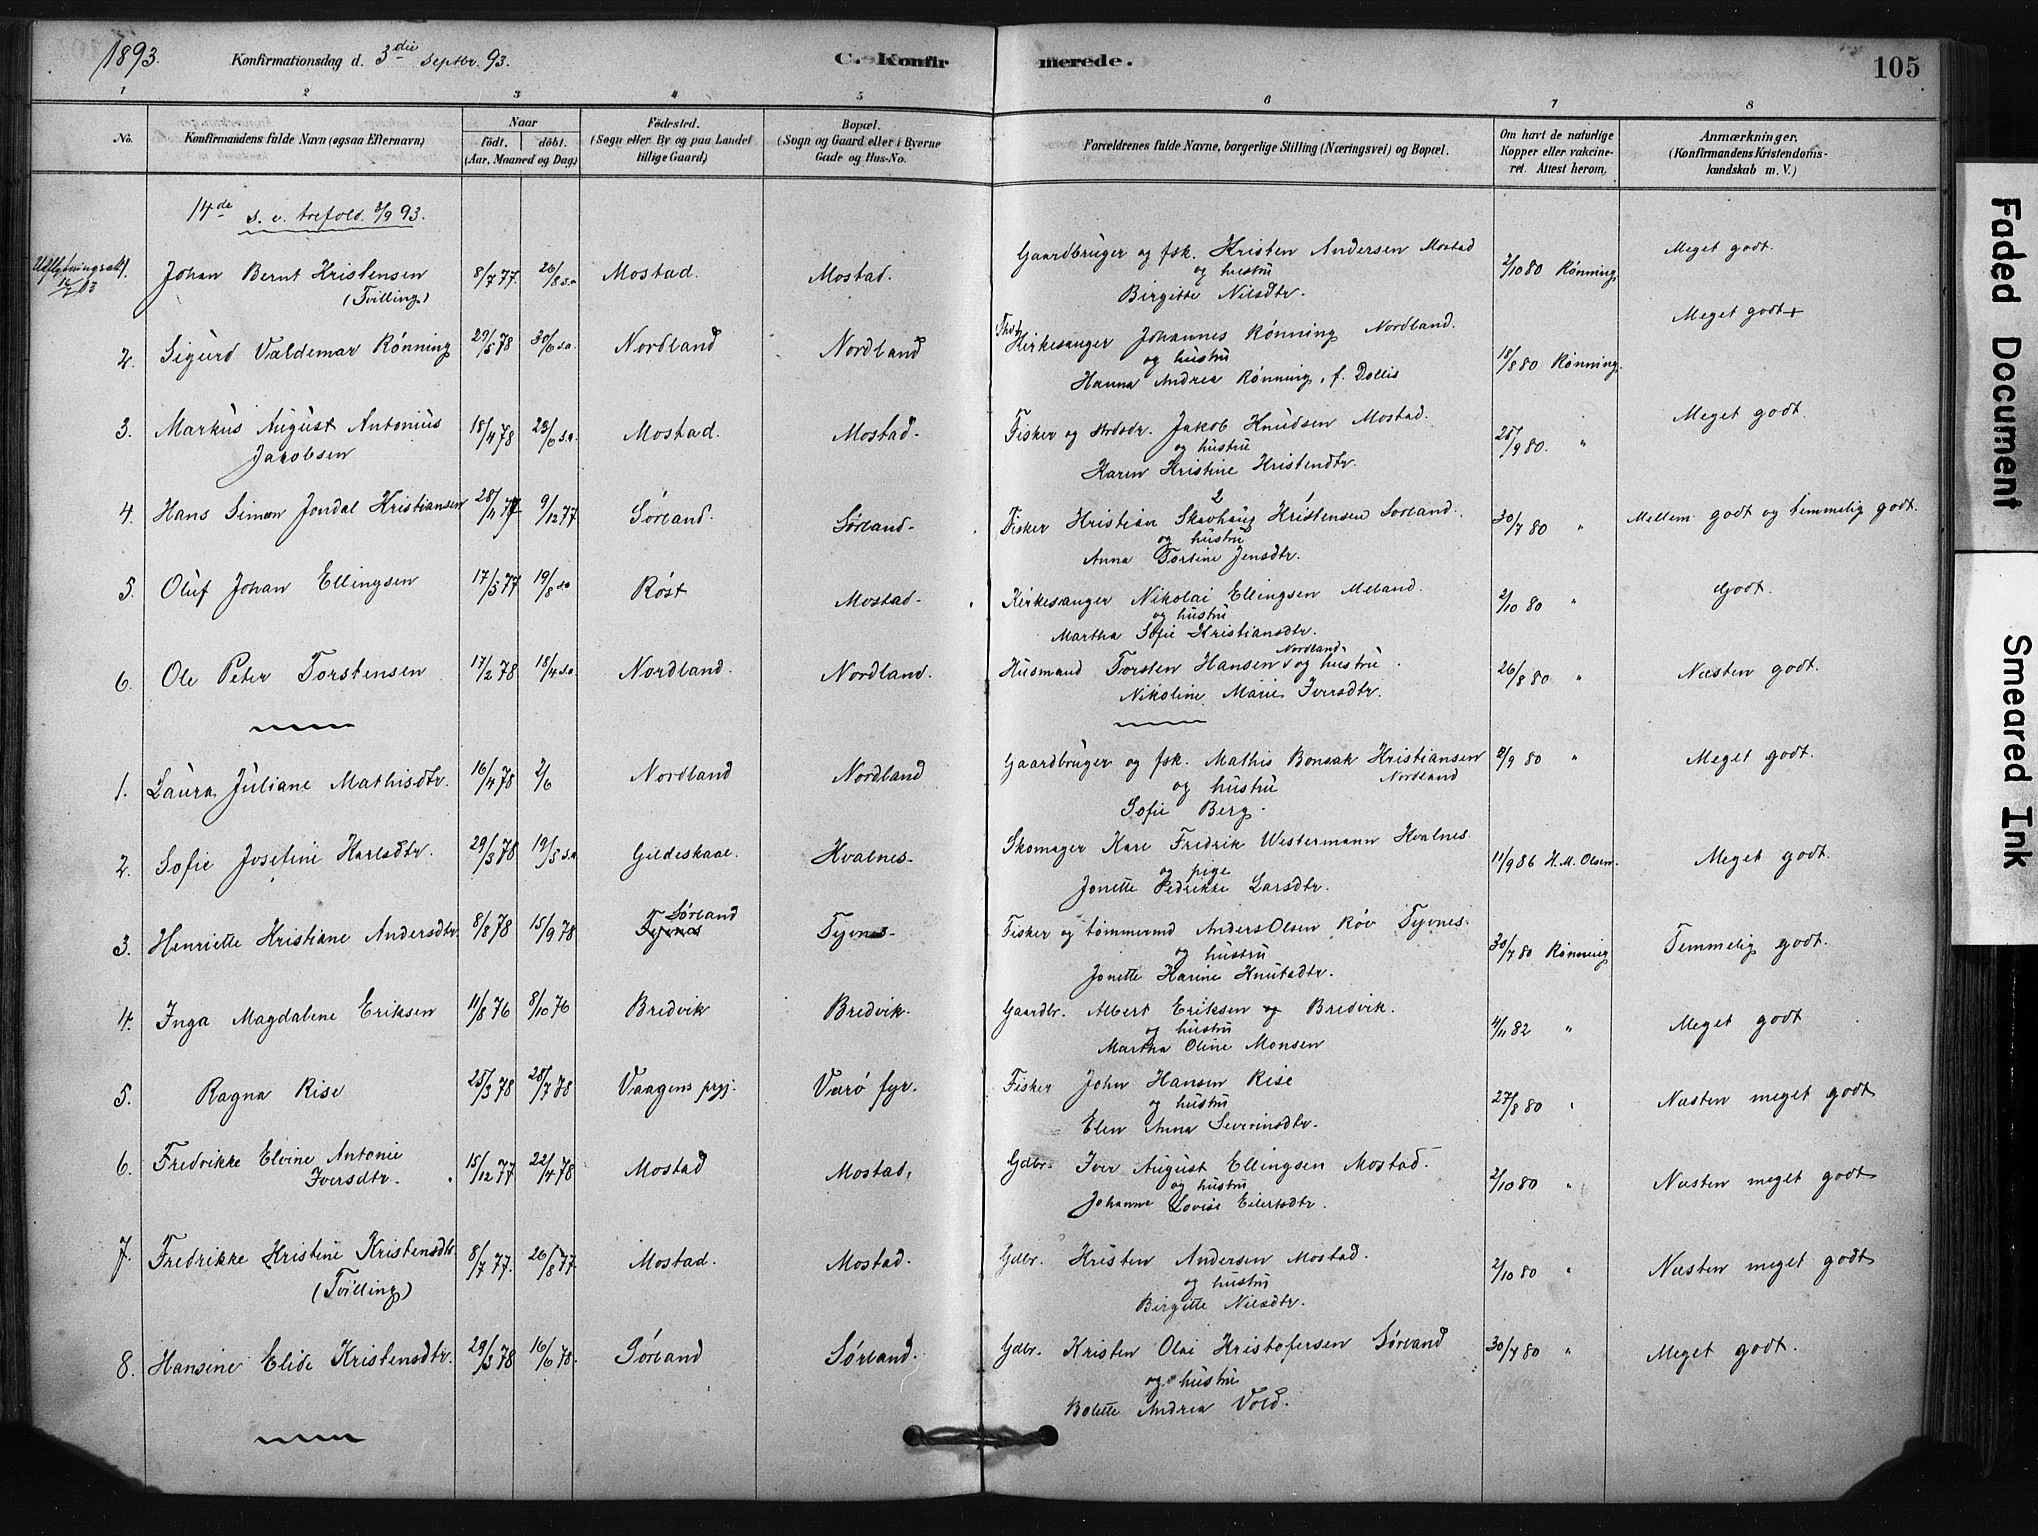 1893. Konfirmationsdag d. 3die Septbr. 93. C. Konfirmerede. 105
1 2 3 4 5 6 7 8
No. Konfirmandens fulde Navn (ogsaa Efternavn) Naar født. døbt. (Aar, Maaned og Dag) Fødested. (Sogn eller By og paa Landet tillige Gaard) Bopæl. (Sogn og Gaard eller i Byerne Gade og Hus-No. Forældrenes fulde Navne, borgerlige Stilling (Næringsvei) og Bopæl. Om havt de naturlige Kopper eller vakcineret. Attest herom. Anmærkninger. (Konfirmandens Kristendomskundskab m. V.)
14de s. e. trefold. 3/9 93.
1. Johan Bernt Kristensen 8/7 77. 26/8 s.a Mostad. Mostad. Gaardbruger og fsk. Kristen Andersen Mostad 2/10 80 Rønning Meget godt.
(Tvilling) og hustru
Birgitte Nilsdtr.
2. Sigurd Valdemar Rønning 29/5 78 30/6 s.a. Nordland Nordland Kirkesanger Johannes Rønning Nordland. 18/8 80 Rønning. Meget godt+
og hustru
Hanna Andrea Rønning, f. Dollis
3. Markus August Antonius 18/4 78 23/6 s.a. Mostad. Mostad. Fisker og Jakob Knudsen Mostad. 25/9 80. " Meget godt
Jacobsen og hustru
Karen Kristine Kristendtr.
4. Hans Simon Jondal Kristiansen 28/ 77 9/12 77 Sørland. Sørland. Fisker Kristian Skavhaug Kristensen Sørland. 30/7 80 " Mellem godt og temmelig godt.
og hustru
Anna Torsine Jensdtr.
5. Oluf Johan Ellingsen 17/5 77 19/8 sa Røst Mostad. Kirkesanger Nikolai Ellingsen Meland. 2/10 80 " Godt.
og hustru
Martha Sofie Kristiansdtr.
6. Ole Peter Torstensen 17/2 78 18/4 s.a Nordland. Nordland. Husmand Torsten Hansen Nordland. og hustru 26/8 80 " Næsten godt.
Nikoline Marie Iversdtr.
1. Laura Juliane Mathisdtr. 16/4 78 2/6 Nordland Nordland Gaardbruger og fsk. Mathis Bonsak Kristiansen 2/9 80 " Meget godt.
Nordland
og hustru
Sofie Berg.
2. Sofie Josefine Karlsdtr. 29/3 78 19/5 s.a Gildeskaal. Kvalnes. Skomager Karl Fredrik Westermann Kvalnes 11/9 86 H.M. Olsen. Meget godt.
og pige
Jonette Pedrikke Larsdtr.
3. Henriette Kristiane Andersdtr 6/8 78 15/9 78 Sørland Tyvnes Tyvnes. Fisker og tømmermd Anders Olsen Røv Tyvnes. 30/7 80 Rønning Temmelig godt.
og hustru
Jonette Karine Knutsdtr.
4. Inga Magdalene Eriksen 11/8 76 8/10 76 Bredvik Bredvik. Gaardbr. Albert Eriksen og Bredvik. 4/11 82 " Meget godt
og hustru
Martha Oline Monsen
5. Ragna Rise 25/3 78 28/7 78 Vaagens prgj. Værø fyr. Fisker John Hansen Rise 27/8 80 " Næsten meget godt
og hustru
Elen Anna Severinsdtr.
6. Fredrikke Elvine Antonie 15/12 77 22/4 78 Mostad Mostad, Gdbr. Iver August Ellingsen Mostad. 2/10 80 " Næsten meget godt
Iversdtr. og hustru
Johanne Lovise Eilertsdtr.
7. Fredrikke Kristine Kristensdtr 8/7 77. 26/8 77. Mostad. Mostad. Gdbr. Kristen Andersen Mostad. 2/10 80 " Næsten meget godt
(Tvilling) og hustru
Birgitte Nilsdtr.
8. Hansine Elide Kristensdtr. 29/3 78 16/6 78. Sørland Sørland. Gdbr. Kristen Olai Kristofersen Sørland 30/7 80 " Meget godt.
og hustru
Bolette Andrea Vold.
Faded Document
Smeared Ink